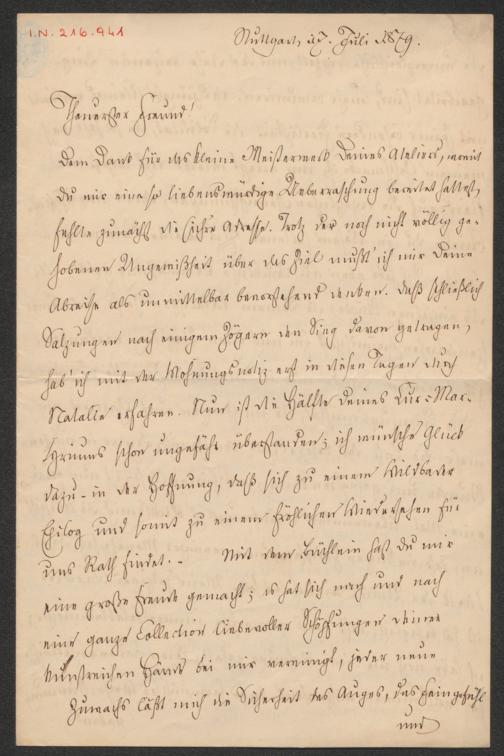 I.N. 216.941
Stuttgart, 27. Juli 1879.
Theuerster Freund!
Dem Dank für das kleine Meisterwerk Deines Ateliers, womit
Du mir eine so liebenswürdige Ueberraschung bereitet hattest,
fehlte zunächst die sichre Adresse. Trotz der noch nicht völlig ge-
hobenen Ungewißheit über das Ziel mußt' ich mir Deine
Abreise als unmittelbar bevorstehend denken. Daß schließlich
Salzungen nach einigem Zögern den Sieg davon getragen,
hab' ich mit der Wohnungsnotiz erst in diesen Tagen durch
Natalie erfahren. Nun ist die Hälfte Deines Cur-Mar-
tyriums schon ungefähr überstanden; ich wünsche Glück
dazu - in der Hoffnung, daß sich zu einem Wildbader
Epilog und somit zu einem fröhlichen Wiedersehen für
uns Rath findet. - Mit dem Büchlein hast Du mir
eine große Freude gemacht; es hat sich nach und nach
eine ganze Collection liebevoller Schöpfungen Deiner
kunstreichen Hände bei mir vereinigt, jeder neue
Zuwachs läßt mich die Sicherheit des Auges, das Feingefühl
und